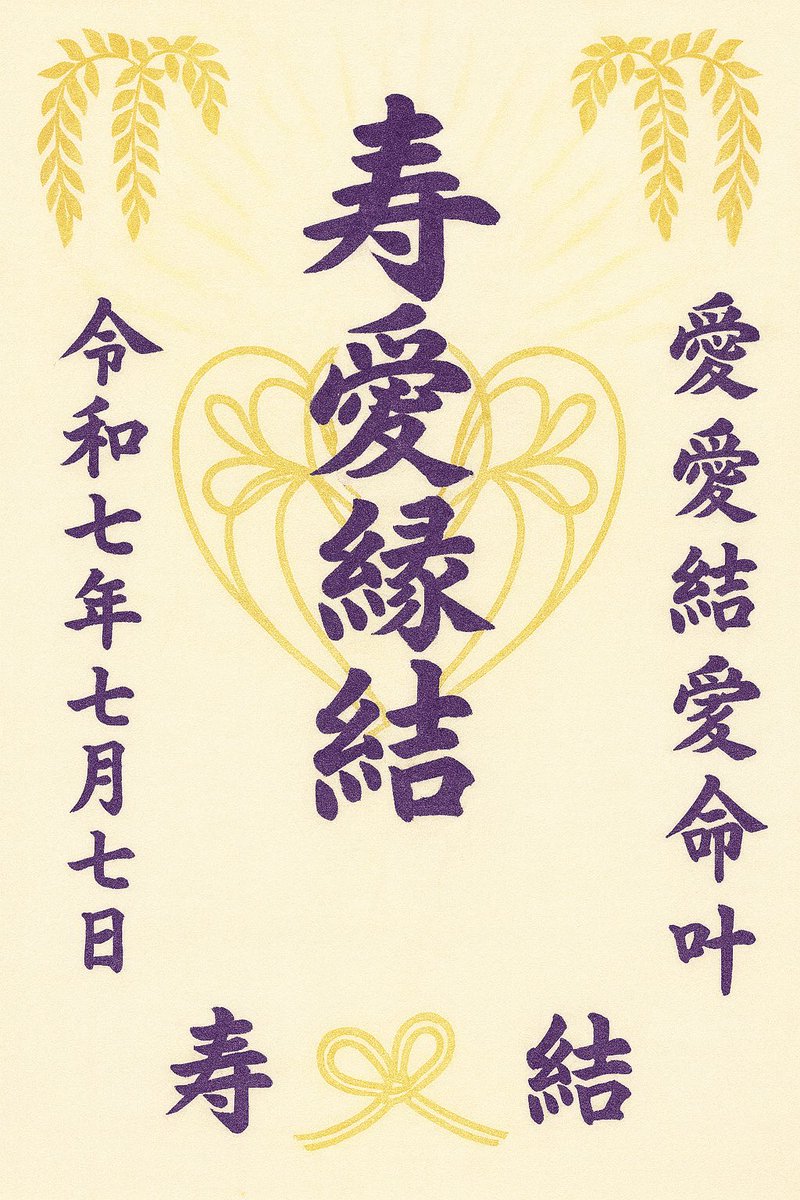 愛愛結愛命叶
寿愛縁結
令和七年七月七日
寿
結